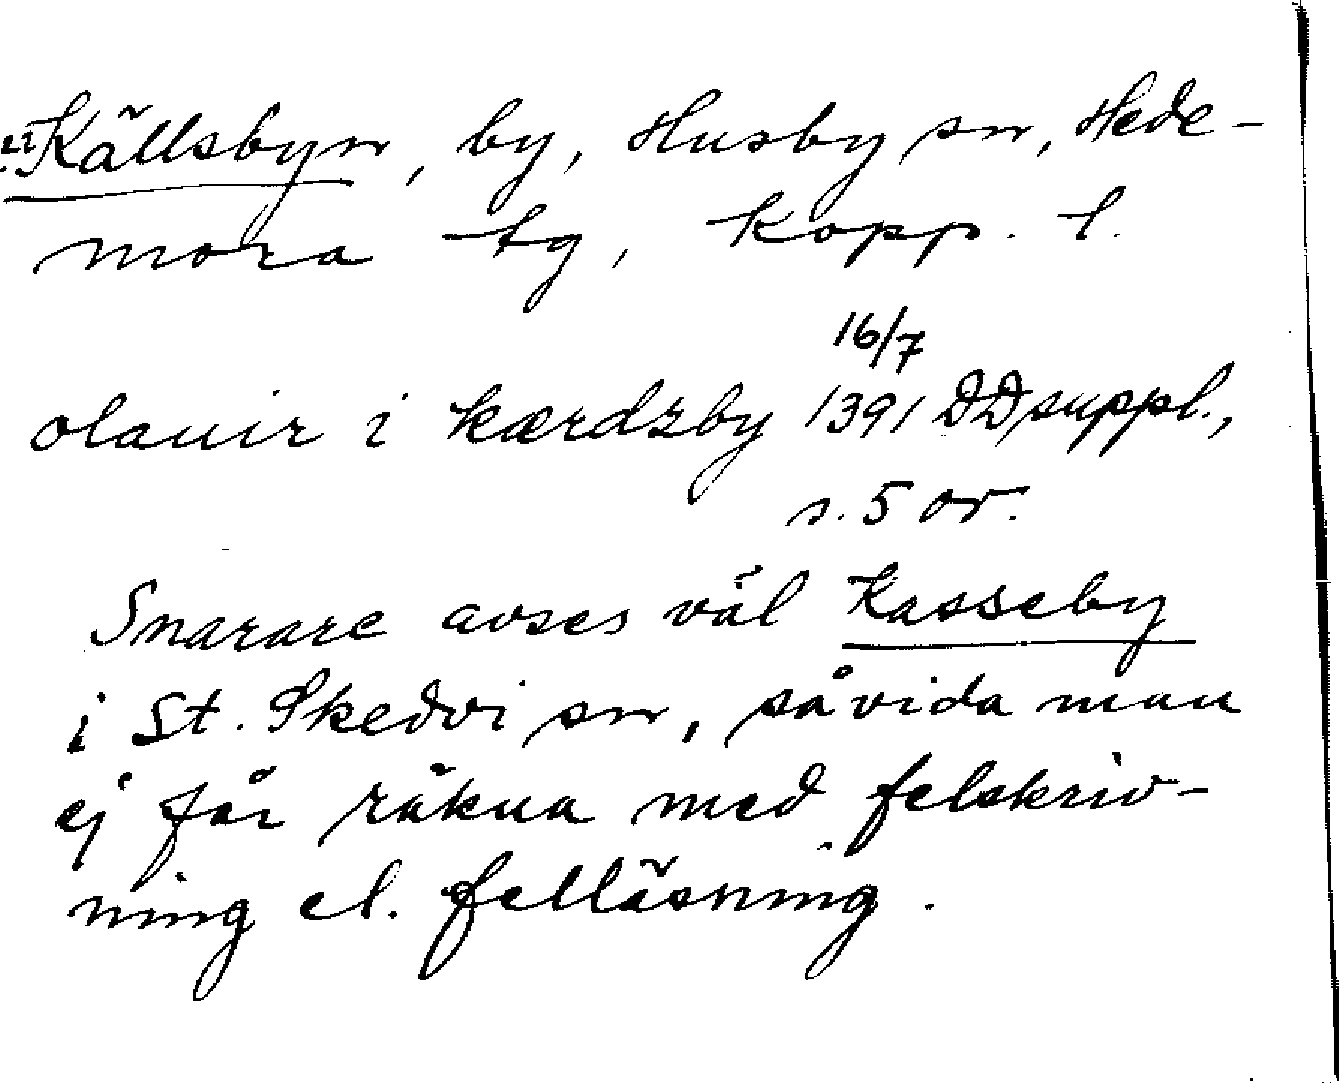 Källsbyn, by, Husby sn, Hede-
mora tg, Kopp. l.
16/7
olauir i kærdzby 1391 DD suppl.,
s. 5 or.
Snarare avses väl Kasseby
i St. Skedvi sn, såvida man
ej får räkna med felskriv-
ning el. felläsning.